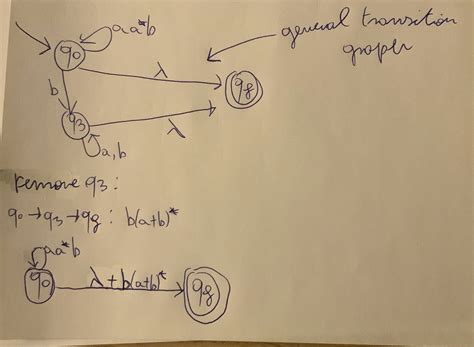 aa*b
general transition
graph
q0
λ
qf
b
q3
λ
a,b
remove q3:
q0→q3→qf: b(a+b)*
aa*b
q0 λ+b(a+b)* qf